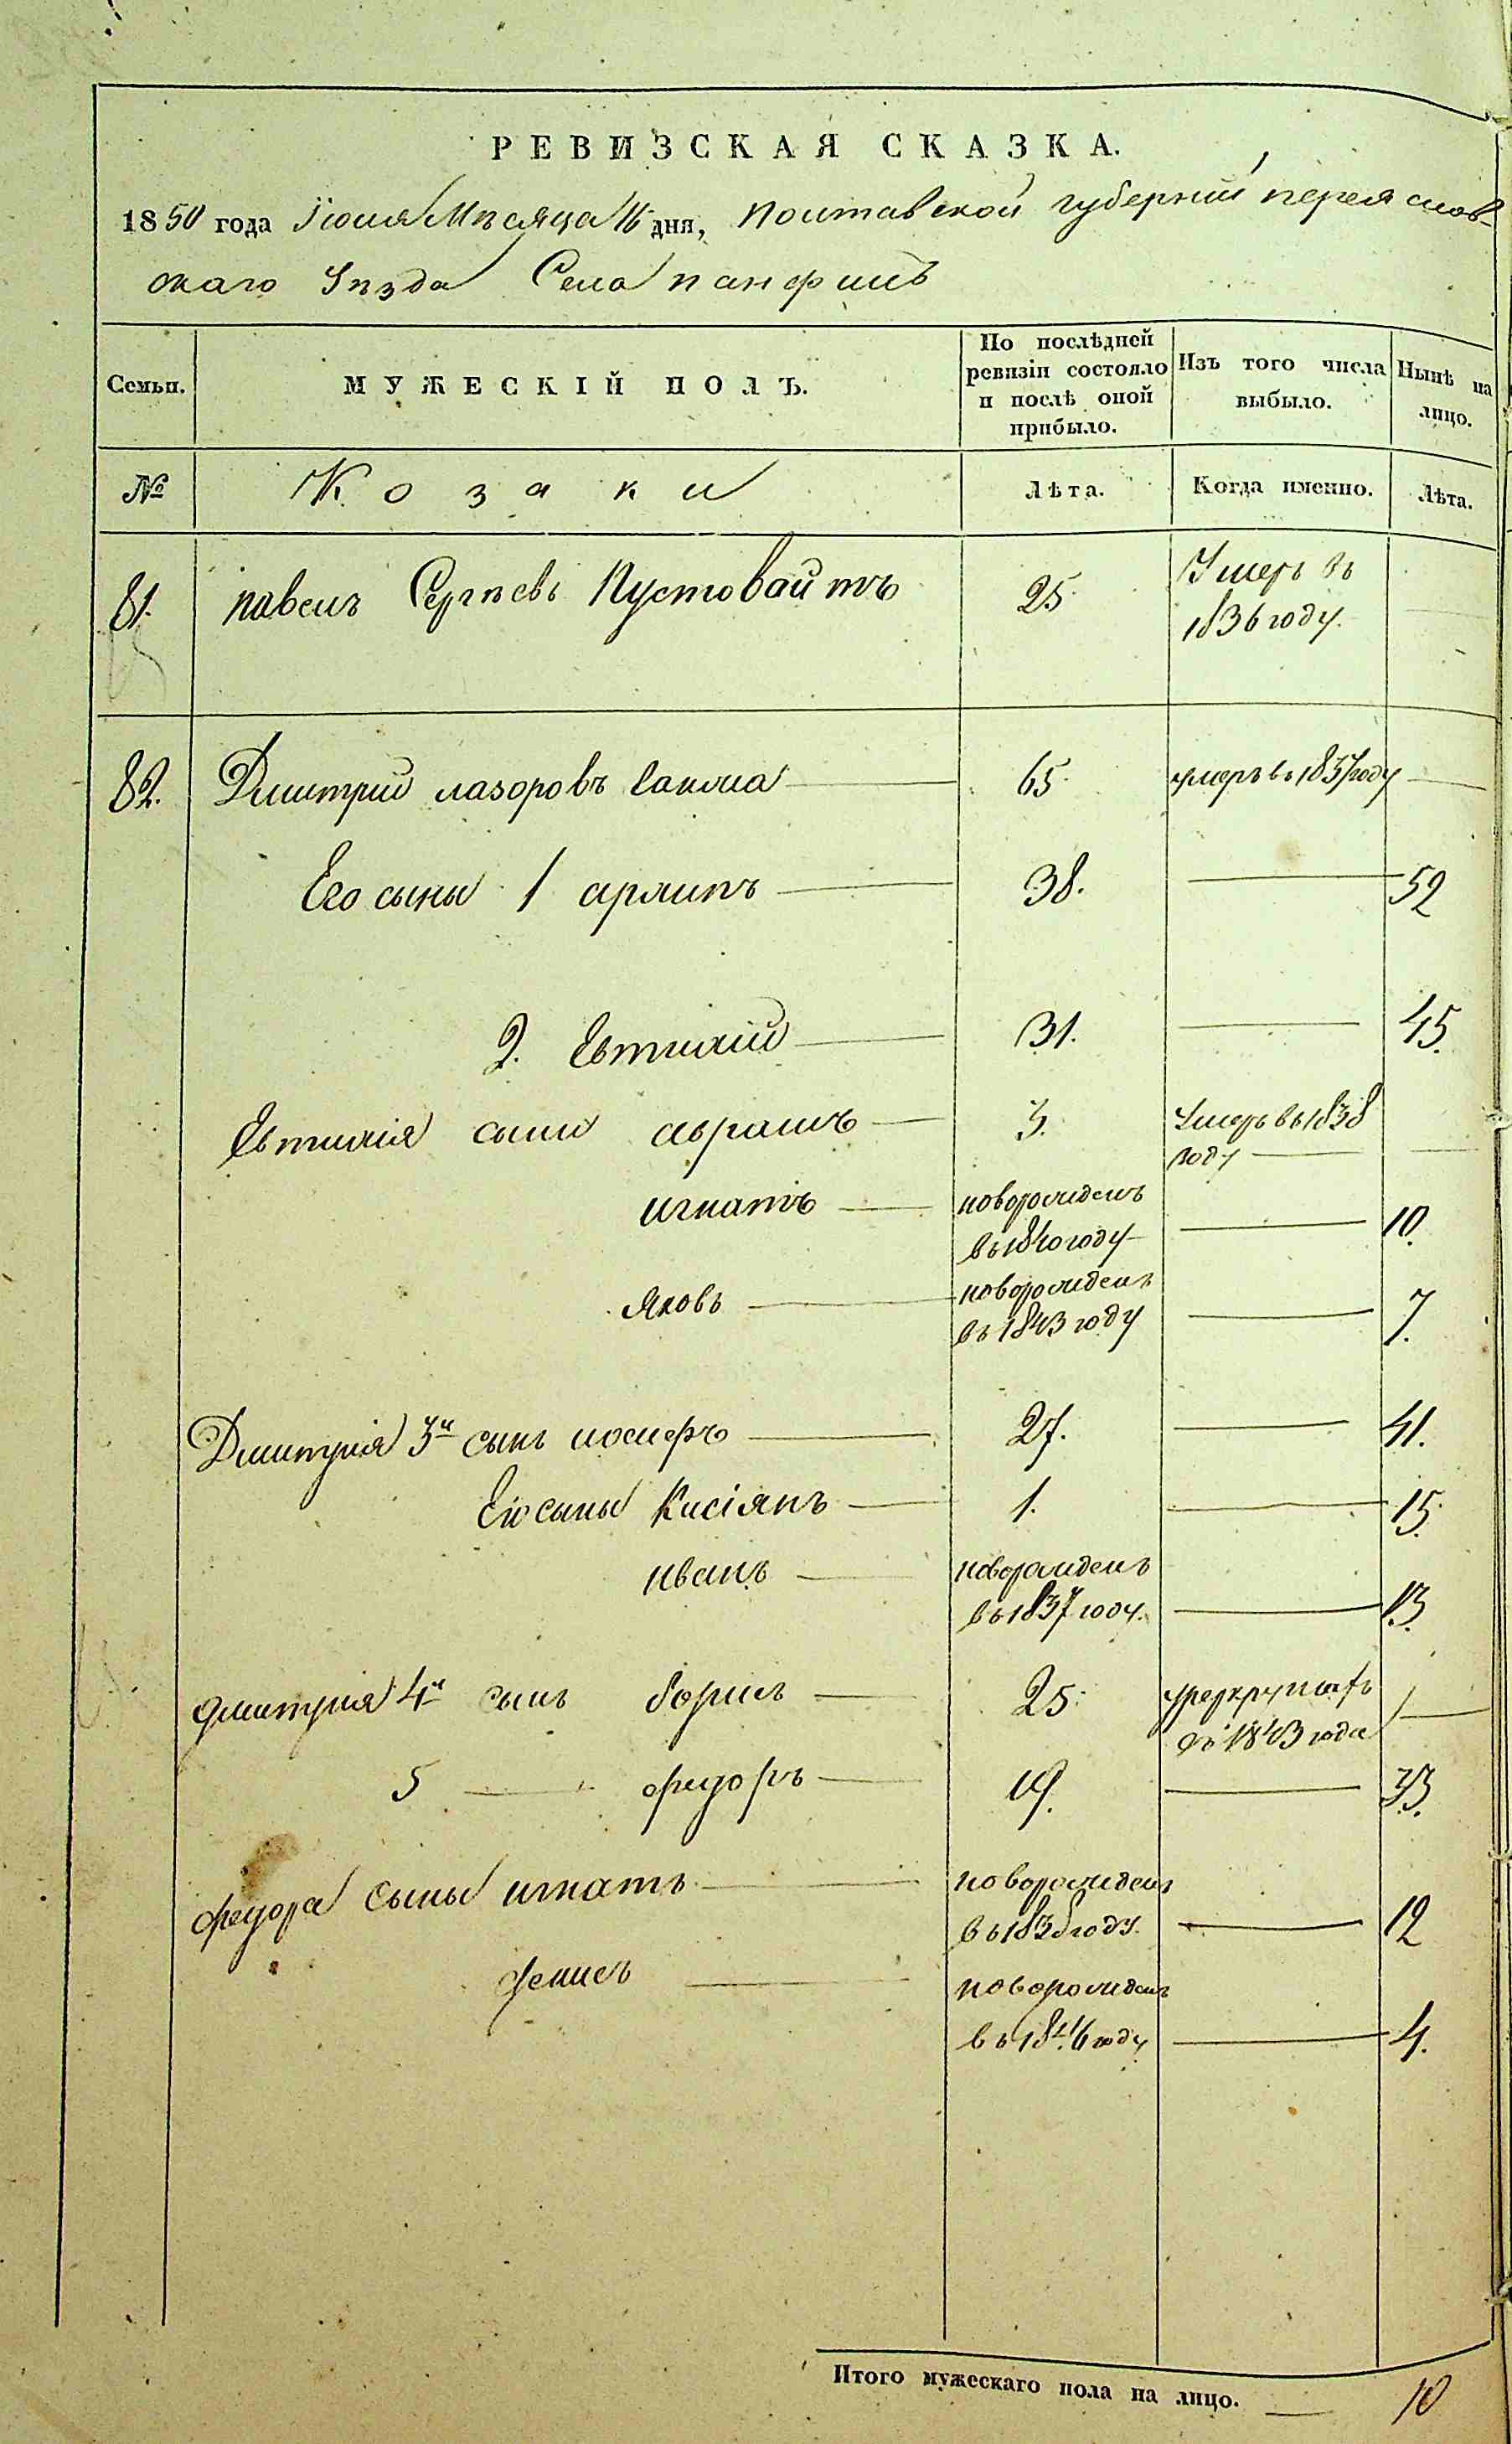 РЕВИЗСКАЯ СКАЗКА.
1850 года Іюля Мѣсяца 16 дня, Полтавской губерніи переяслов-
скаго Уѣзда Села панфилъ
Семьи. МУЖЕСКІЙ ПОЛЪ. По послѣдней ревизіи состояло и послѣ оной прибыло. Изъ того числа выбыло. Нынѣ на лицо.
№ Козаки Лѣта. Когда именно. Лѣта.
81. павелъ Сергѣевъ Пустовайтъ 25 Умеръ въ
1836 году.
82. Дмитрий лазоровъ 65 умеръ въ 1837 году
Его сыны 1 архипъ 38. 52
2. Евтихій 31. 45.
Евтихія сыны аврамъ 3. Умеръ въ 1838
году
игнатъ новорожденъ
въ 1840 году 10.
яковъ новорожденъ
въ 1843 году 7.
Дмитрія 3й сынъ иосифъ 27. 41.
Его сыны Касіянъ 1. 15.
иванъ новорожденъ
въ 1837 году. 13.
дмитрія 4й сынъ борисъ 25
1843 года
5 федоръ 19. 33.
федора сыны игнатъ новорожденъ
въ 1838 году. 12
денисъ новорожденъ
въ 1846 году 4.
Итого мужескаго пола на лицо. 10